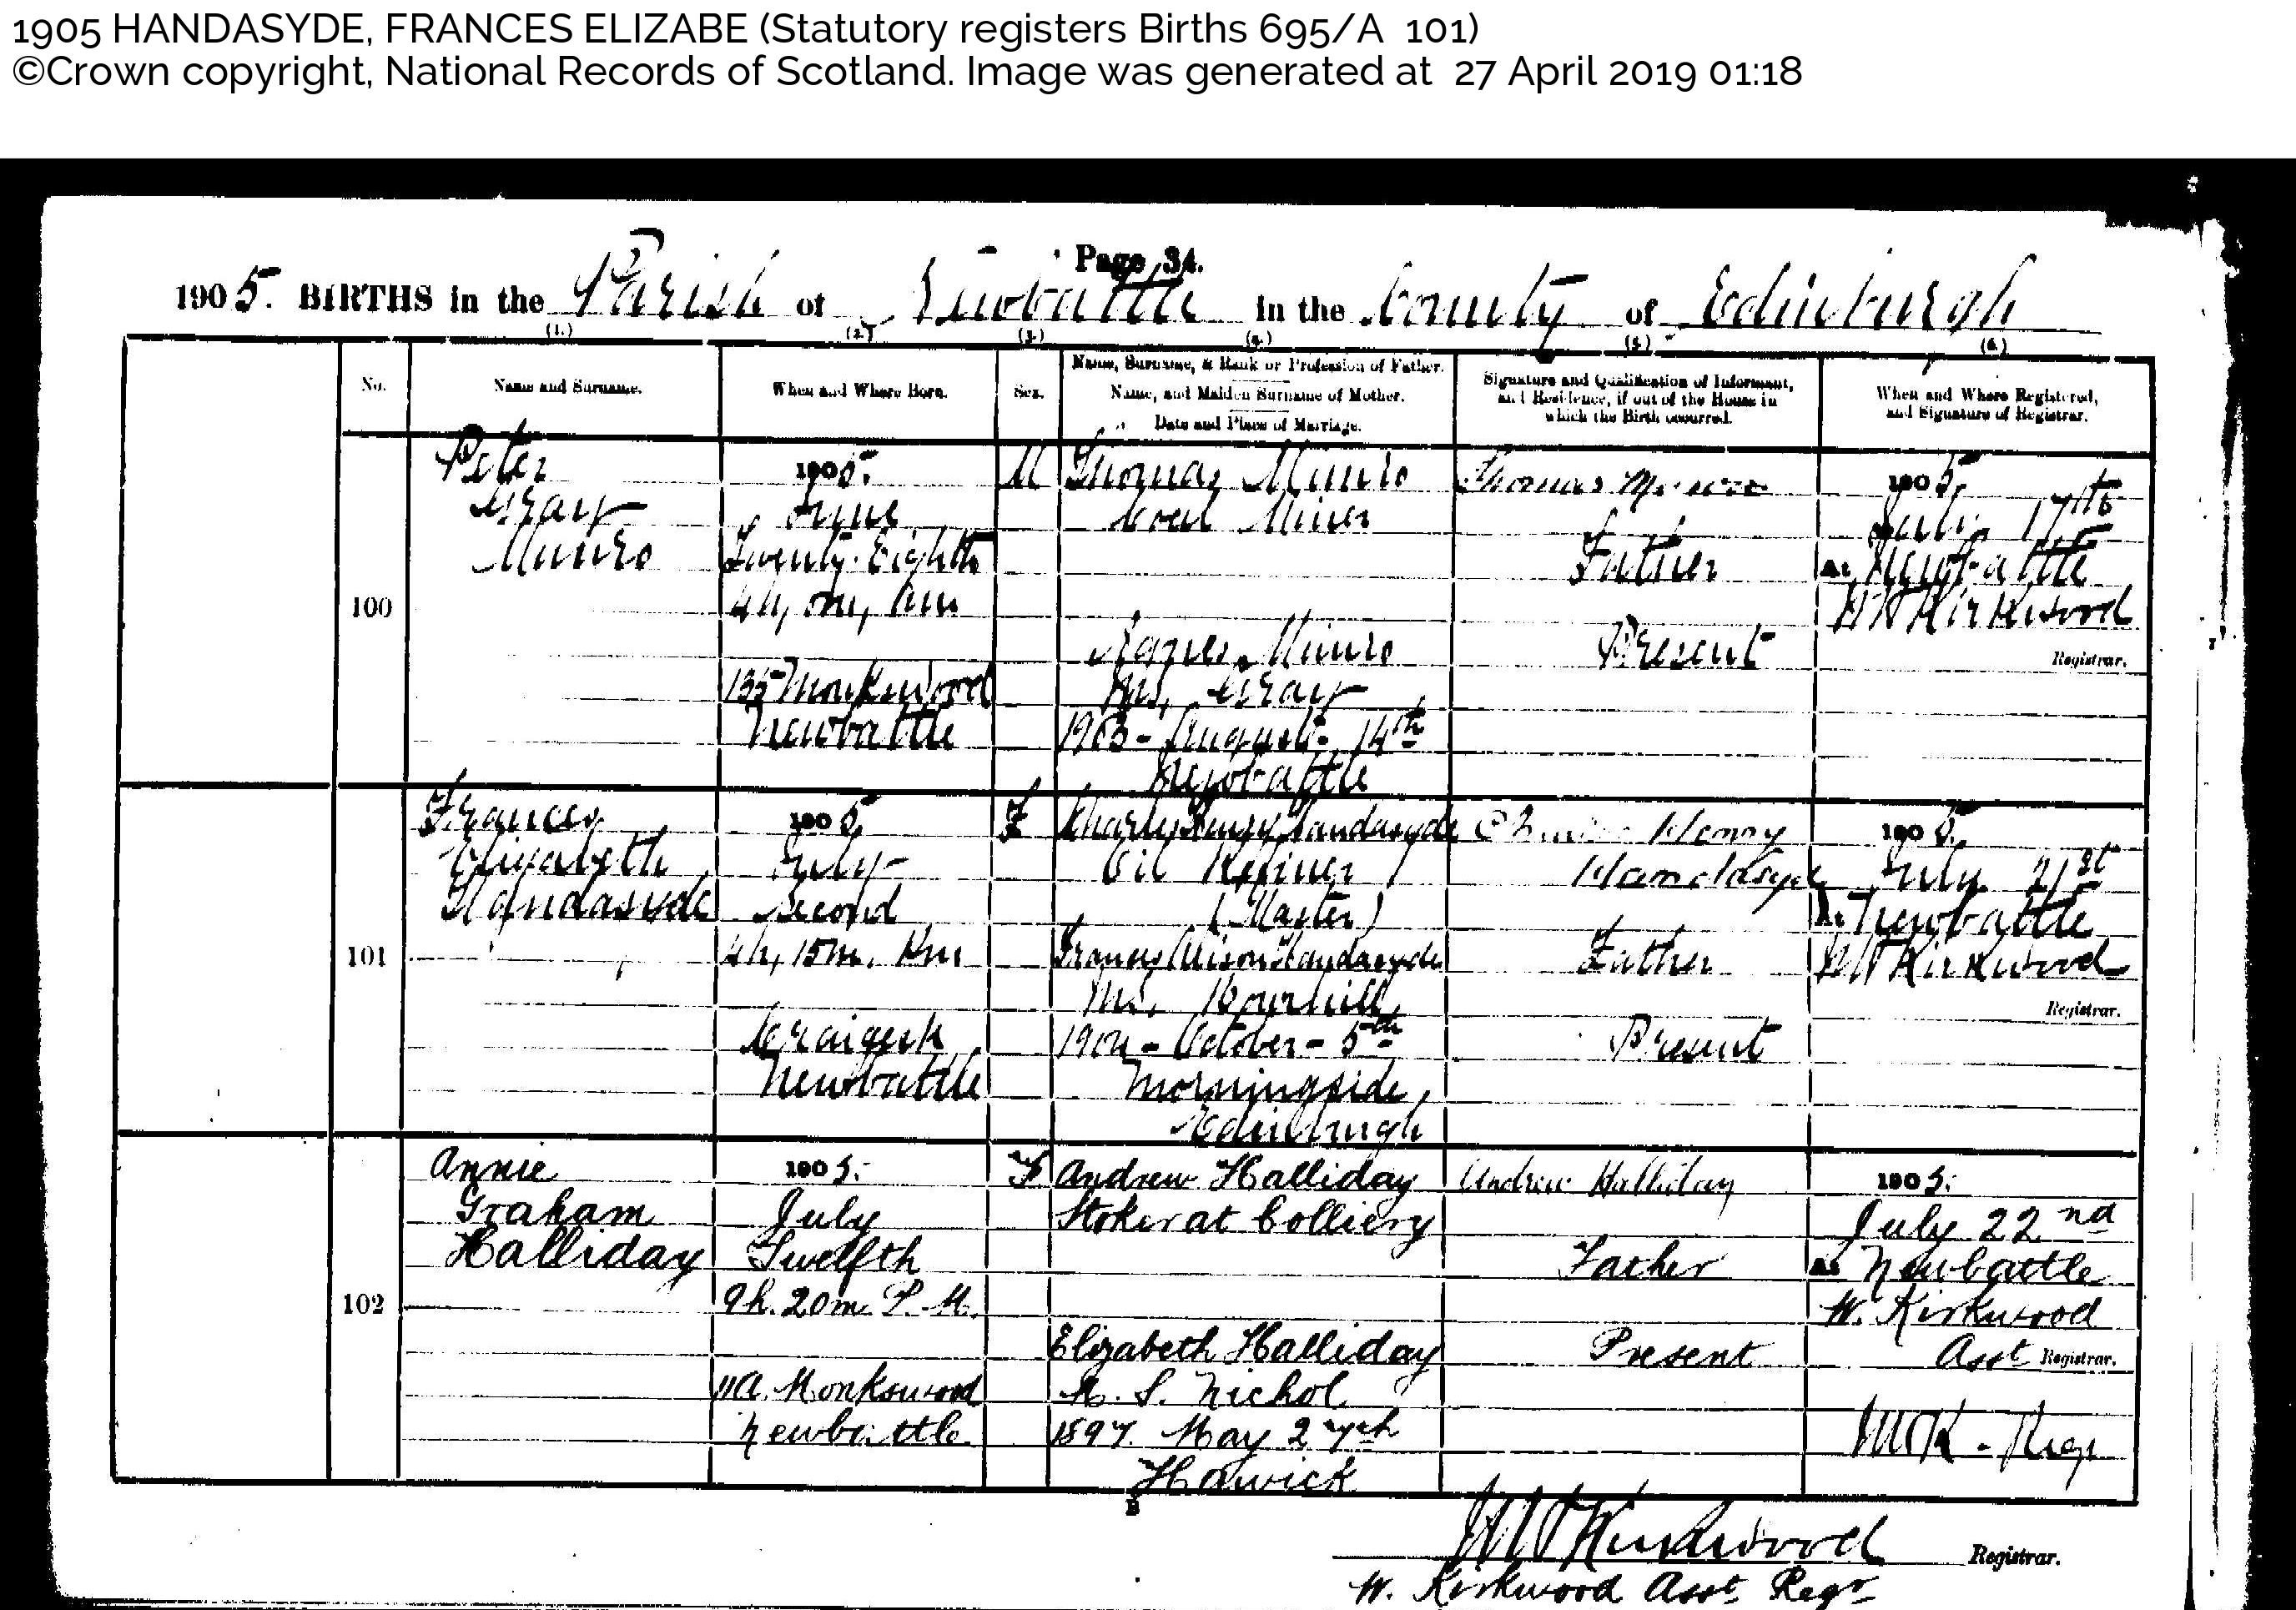 1905 HANDASYDE, FRANCES ELIZABE (Statutory registers Births 695/A 101)
©Crown copyright, National Records of Scotland. Image was generated at 27 April 2019 01:18
Page 34.
1905. BIRTHS in the Parish of Newbattle in the County of Edinburgh
(1.) (2.) (3.) (4.) (5.) (6.)
No.
Name and Surname.
When and Where Born.
Sex.
Name, Surname, & Rank or Profession of Father.
Name, and Maiden Surname of Mother.
Date and Place of Marriage.
Signature and Qualification of Informant,
and Residence, if out of the House in
which the Birth occurred.
When and Where Registered,
and Signature of Registrar.
100
Peter
Gray
Munro
1905.
June
Twenty-Eighth
4h, 0m, Am
135 Monkswood
Newbattle
M
Thomas Munro
Coal Miner
Agnes Munro
MS, Gray
1903 - August - 14th
Newbattle
Thomas Munro
Father
Present
1905.
July 17th
At Newbattle
Kirkwood
Registrar.
101
Frances
Elizabeth
Handasyde
1905
July
Second
4h, 15m. Am
Craigesk
Newbattle
F
Charles Henry Handasyde
Oil Refiner
(Master)
Frances Alison Handasyde
MS, Bourhill
1904 - October - 5th
Morningside,
Edinburgh
Charles Henry
Handasyde
Father
Present
1905.
July 21st
At Newbattle
Kirkwood
Registrar.
102
Annie
Graham
Halliday
1905.
July
Twelfth
9h. 20m. P.M.
11A. Monkswood
Newbattle
F
Andrew Halliday
Stoker at Colliery
Elizabeth Halliday
M. S. Nichol
1897. May 27th
Hawick
Andrew Halliday
Father
Present
1905.
July 22nd
At Newbattle
W. Kirkwood
Asst Registrar.
Regr
B
Kirkwood Registrar.
W. Kirkwood Asst Regr